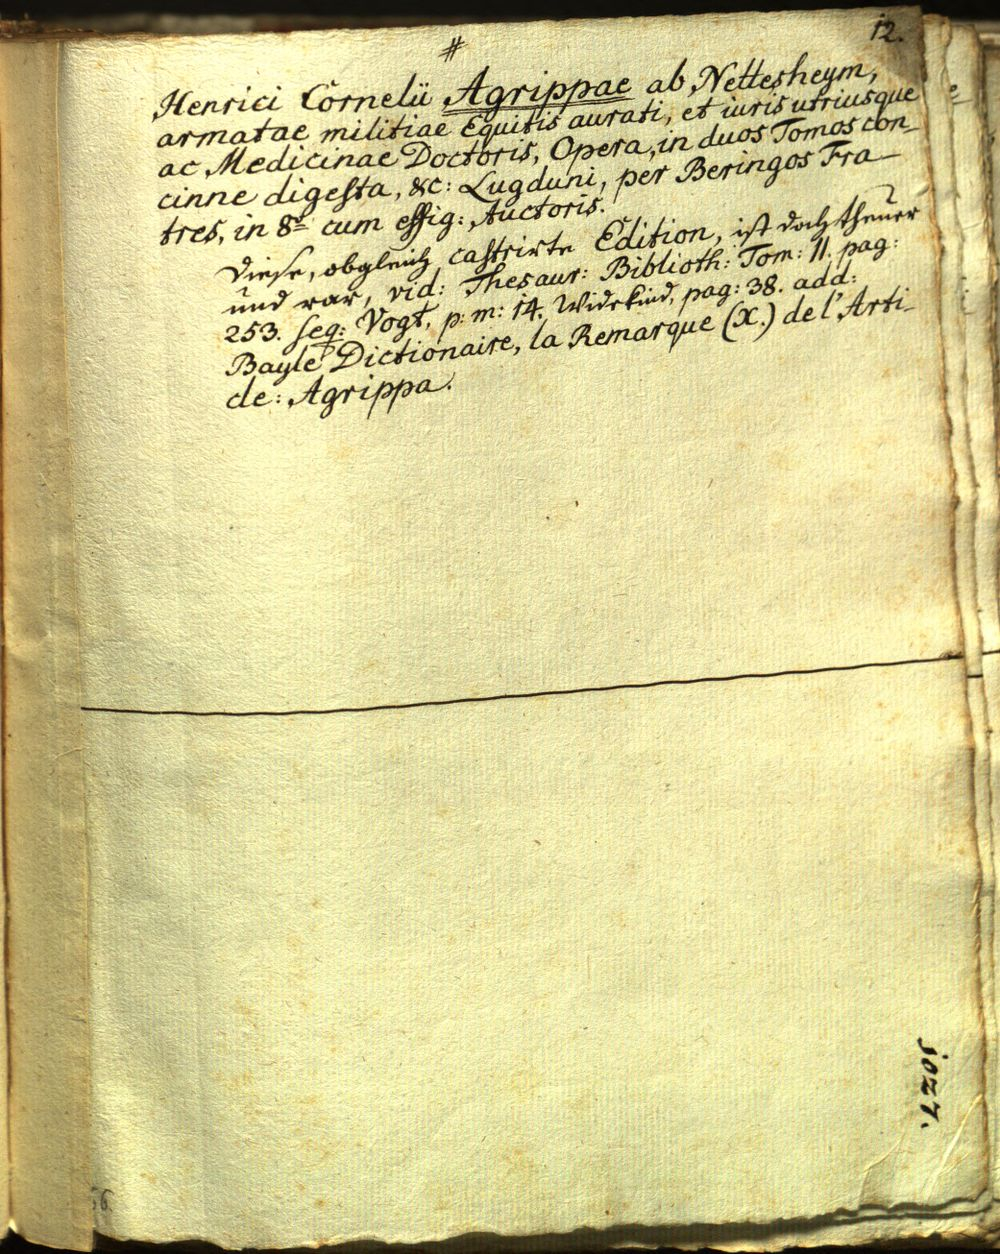 12.
#
Henrici Cornelii Agrippae ab Nettesheym,
armatae militiae Equitis aurati, et iuris utriusque
ac Medicinae Doctoris, Opera, in duos Tomos con-
cinne digesta, &c: Lugduni, per Beringos Fra-
tres, in 8o cum effig: Auctoris.
Diese, obgleich castrirte Edition, ist doch theuer
und rar, vid: Thesaur: Biblioth: Tom: II. pag:
253. seq: Vogt, p: m: 14. Widekind, pag: 38. add:
Bayle Dictionaire, la Remarque (X.) de l'Arti-
cle: Agrippa.
1027.
66